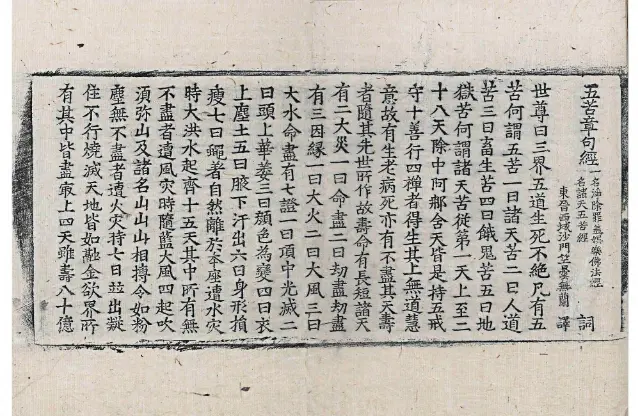 五苦章句經 詞
一名淨除罪蓋娛樂佛法經
一名諸天五苦經
東晉西域沙門竺曇無蘭 譯
世尊曰三界五道生死不絕凡有五
苦何謂五苦一曰諸天苦二曰人道
苦三曰畜生苦四曰餓鬼苦五曰地
獄苦何謂諸天苦從第一天上至二
十八天除中阿那含天皆是持五戒
守十善行四禪者得生其上無道慧
意故有生老病死亦有不盡其天壽
者隨其先世所作故壽命有長短諸天
有二大災一曰命盡二曰劫盡劫盡
有三因緣一曰大火二曰大風三曰
大水命盡有七證一曰項中光滅二
曰頭上華萎三曰顏色為變四曰衣
上塵土五曰腋下汗出六曰身形損
瘦七曰蠅著自然離於本座遭水灾
時大洪水起齊十五天其中所有無
不盡者遭風灾時隨藍大風四起吹
須弥山及諸名山山山相摶令如粉
塵無不盡者遭火灾持七日竝出凝
住不行燒滅天地皆如融金欲界所
有其中皆盡冣上四天雖壽八十億